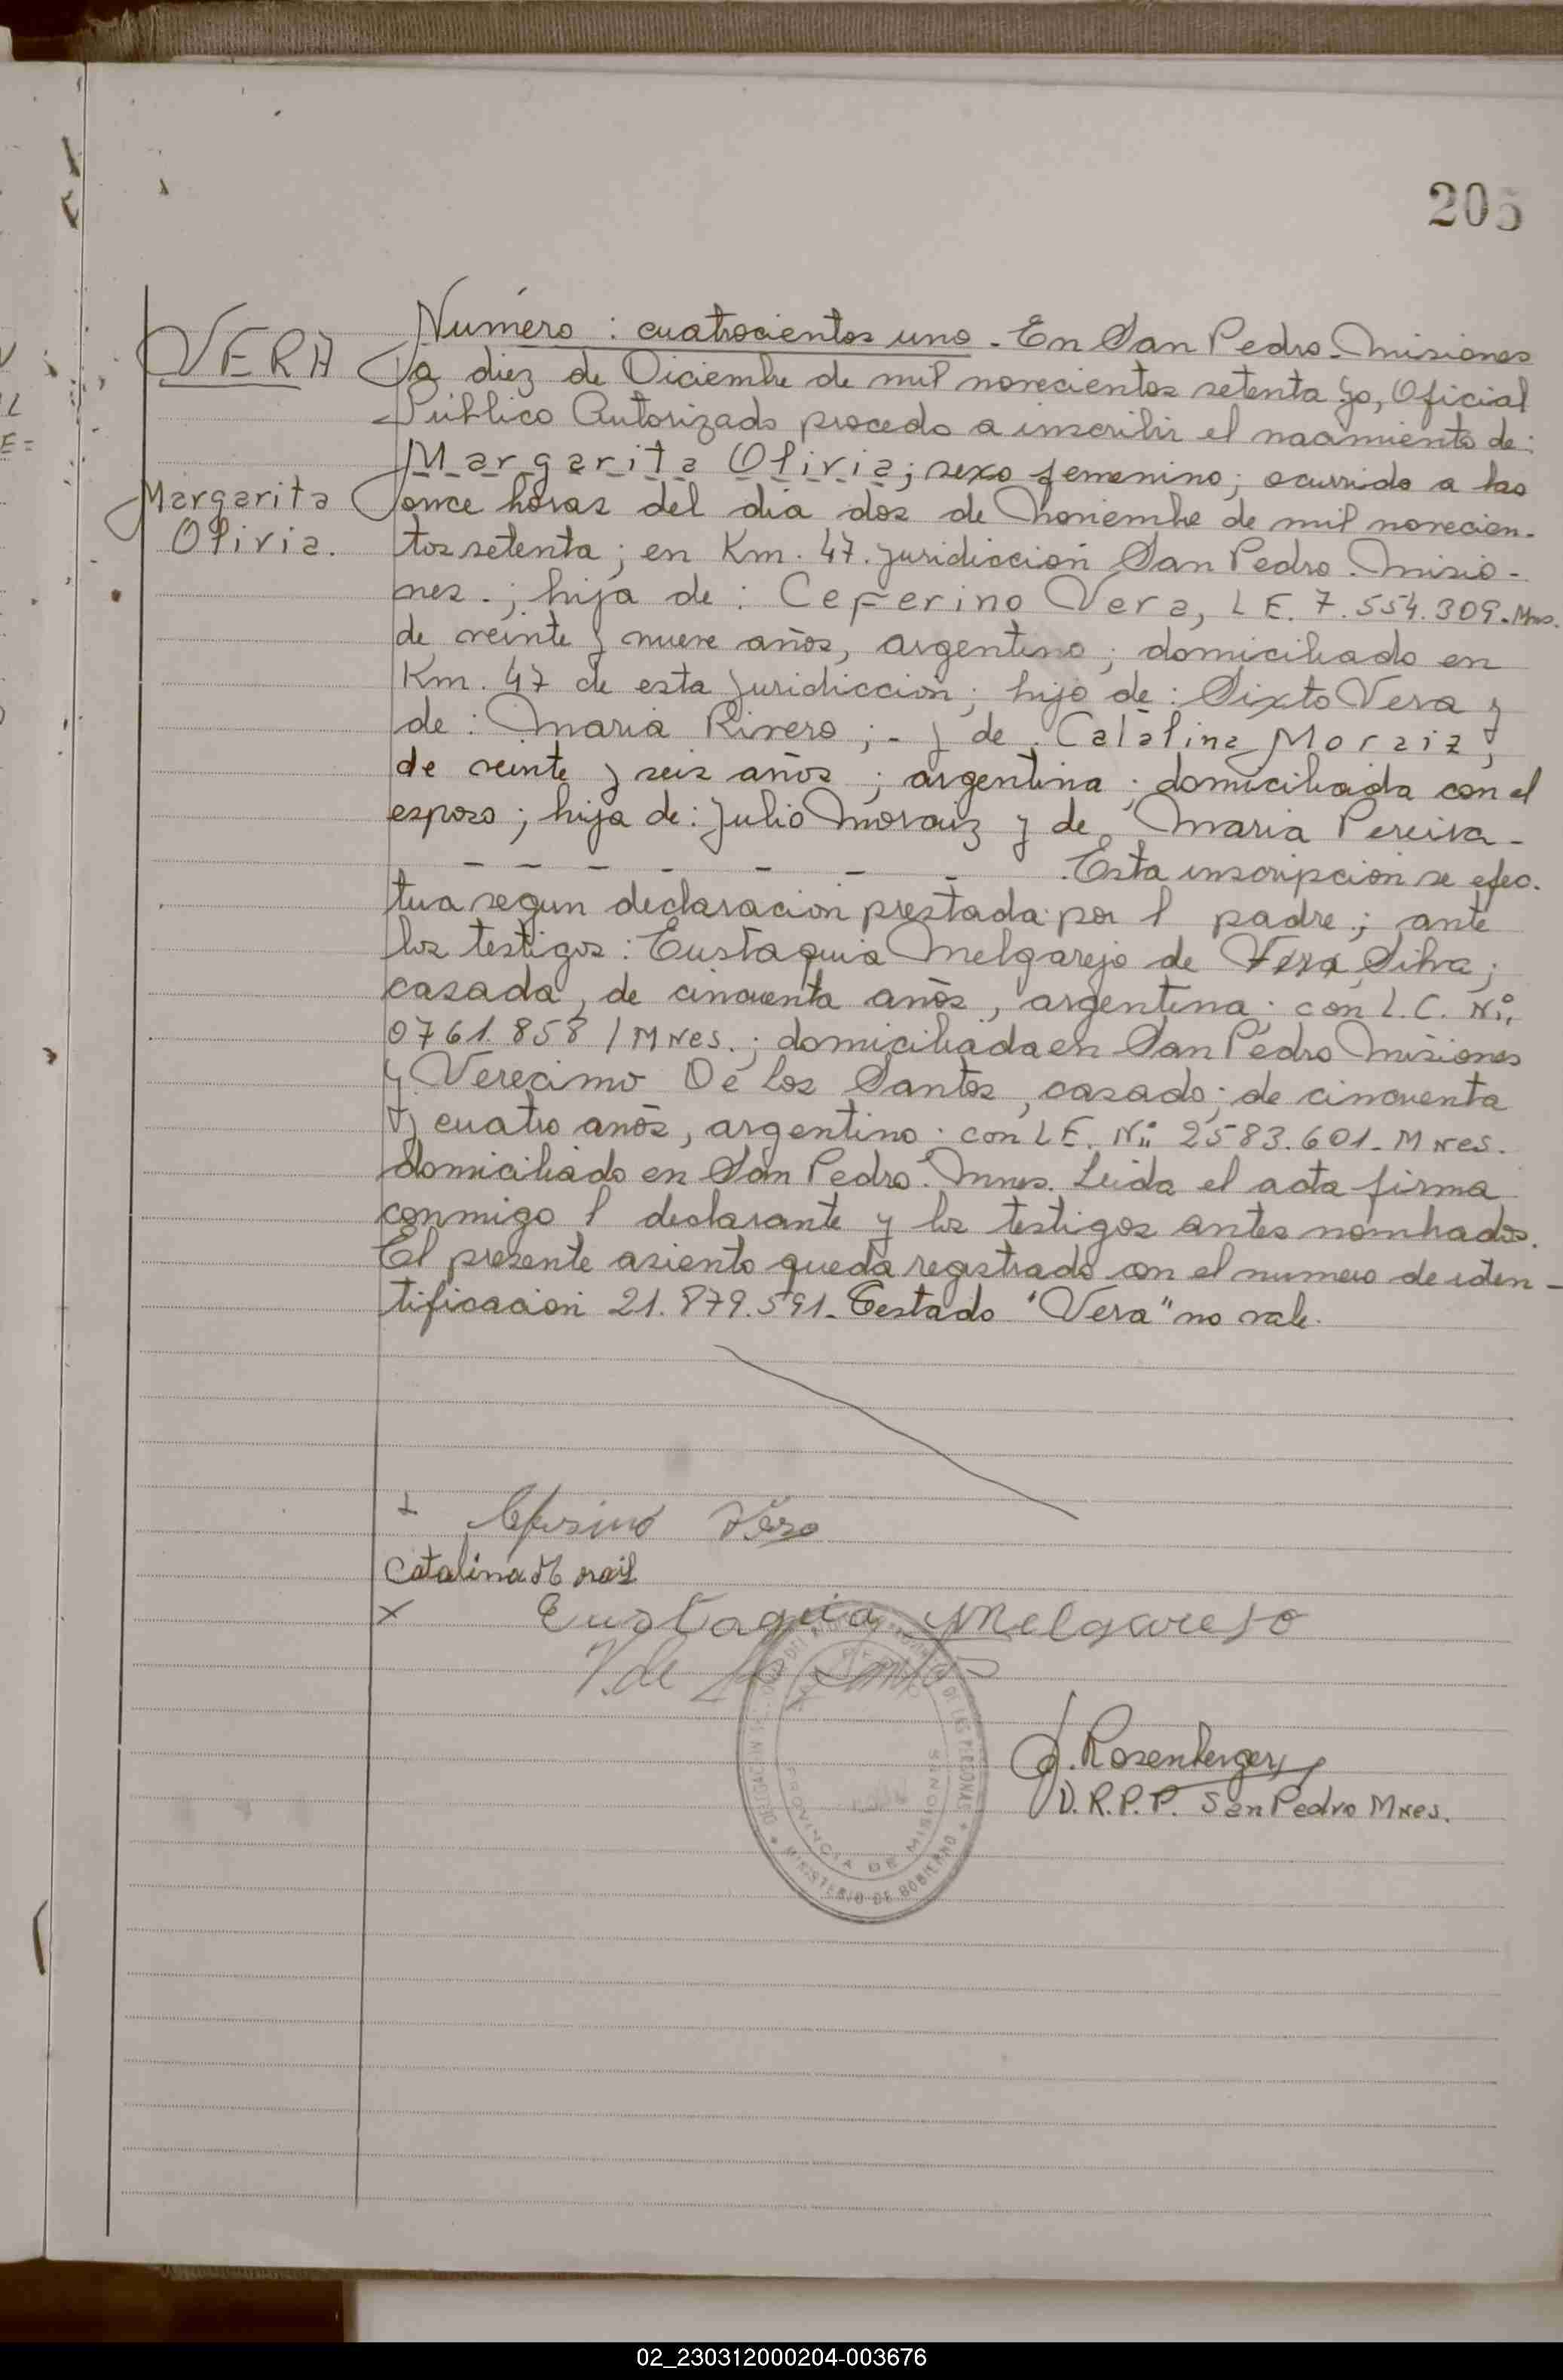 205
VERA
Margarita
Olivia.
Número : cuatrocientos uno - En San Pedro - Misiones
a diez de Diciembre de mil novecientos setenta yo, Oficial
Público Autorizado procedo a inscribir el nacimiento de:
Margarita Olivia; sexo femenino; ocurrido a las
once horas del día dos de Noviembre de mil novecien-
tos setenta; en Km. 47. juridicción San Pedro. Misio-
nes.; hija de: Ceferino Vera, L E. 7.554.309. Mns.
de veinte y nueve años, argentino; domiciliado en
Km. 47 de esta juridicción; hijo de: Sixto Vera y
de: Maria Rivero; - y de. Catalina Moraiz,
de veinte y seis años; argentina; domiciliada con el
esposo; hija de: Julio Moraiz y de Maria Pereira -
- - - - - - - Esta inscripción se efec.
tua segun declaración prestada por l padre; ante
los testigos: Eustaquia Melgarejo de Vera Silva;
casada, de cincuenta años, argentina; con L. C. Nº
0761.858 / Mnes.; domiciliada en San Pedro Misiones
y Verecimo De los Santos, casado; de cincuenta
y cuatro años, argentino; con L E. Nº 2583.601 - Mnes.
domiciliado en San Pedro. Mnes. Leida el acta firma
conmigo l declarante y los testigos antes nombrados.
El presente asiento queda registrado con el numero de iden-
tificación 21.879.591 - Testado "Vera" no vale.
+ Ceferino Vera
Catalina Moraiz
x Eustaquia Melgarejo
V. de los Santos
J. Rosenberger
D.R.P.P. San Pedro Mnes.
DE LAS PERSONAS
PROVINCIA DE MISIONES
MINISTERIO DE GOBIERNO
02_230312000204-003676